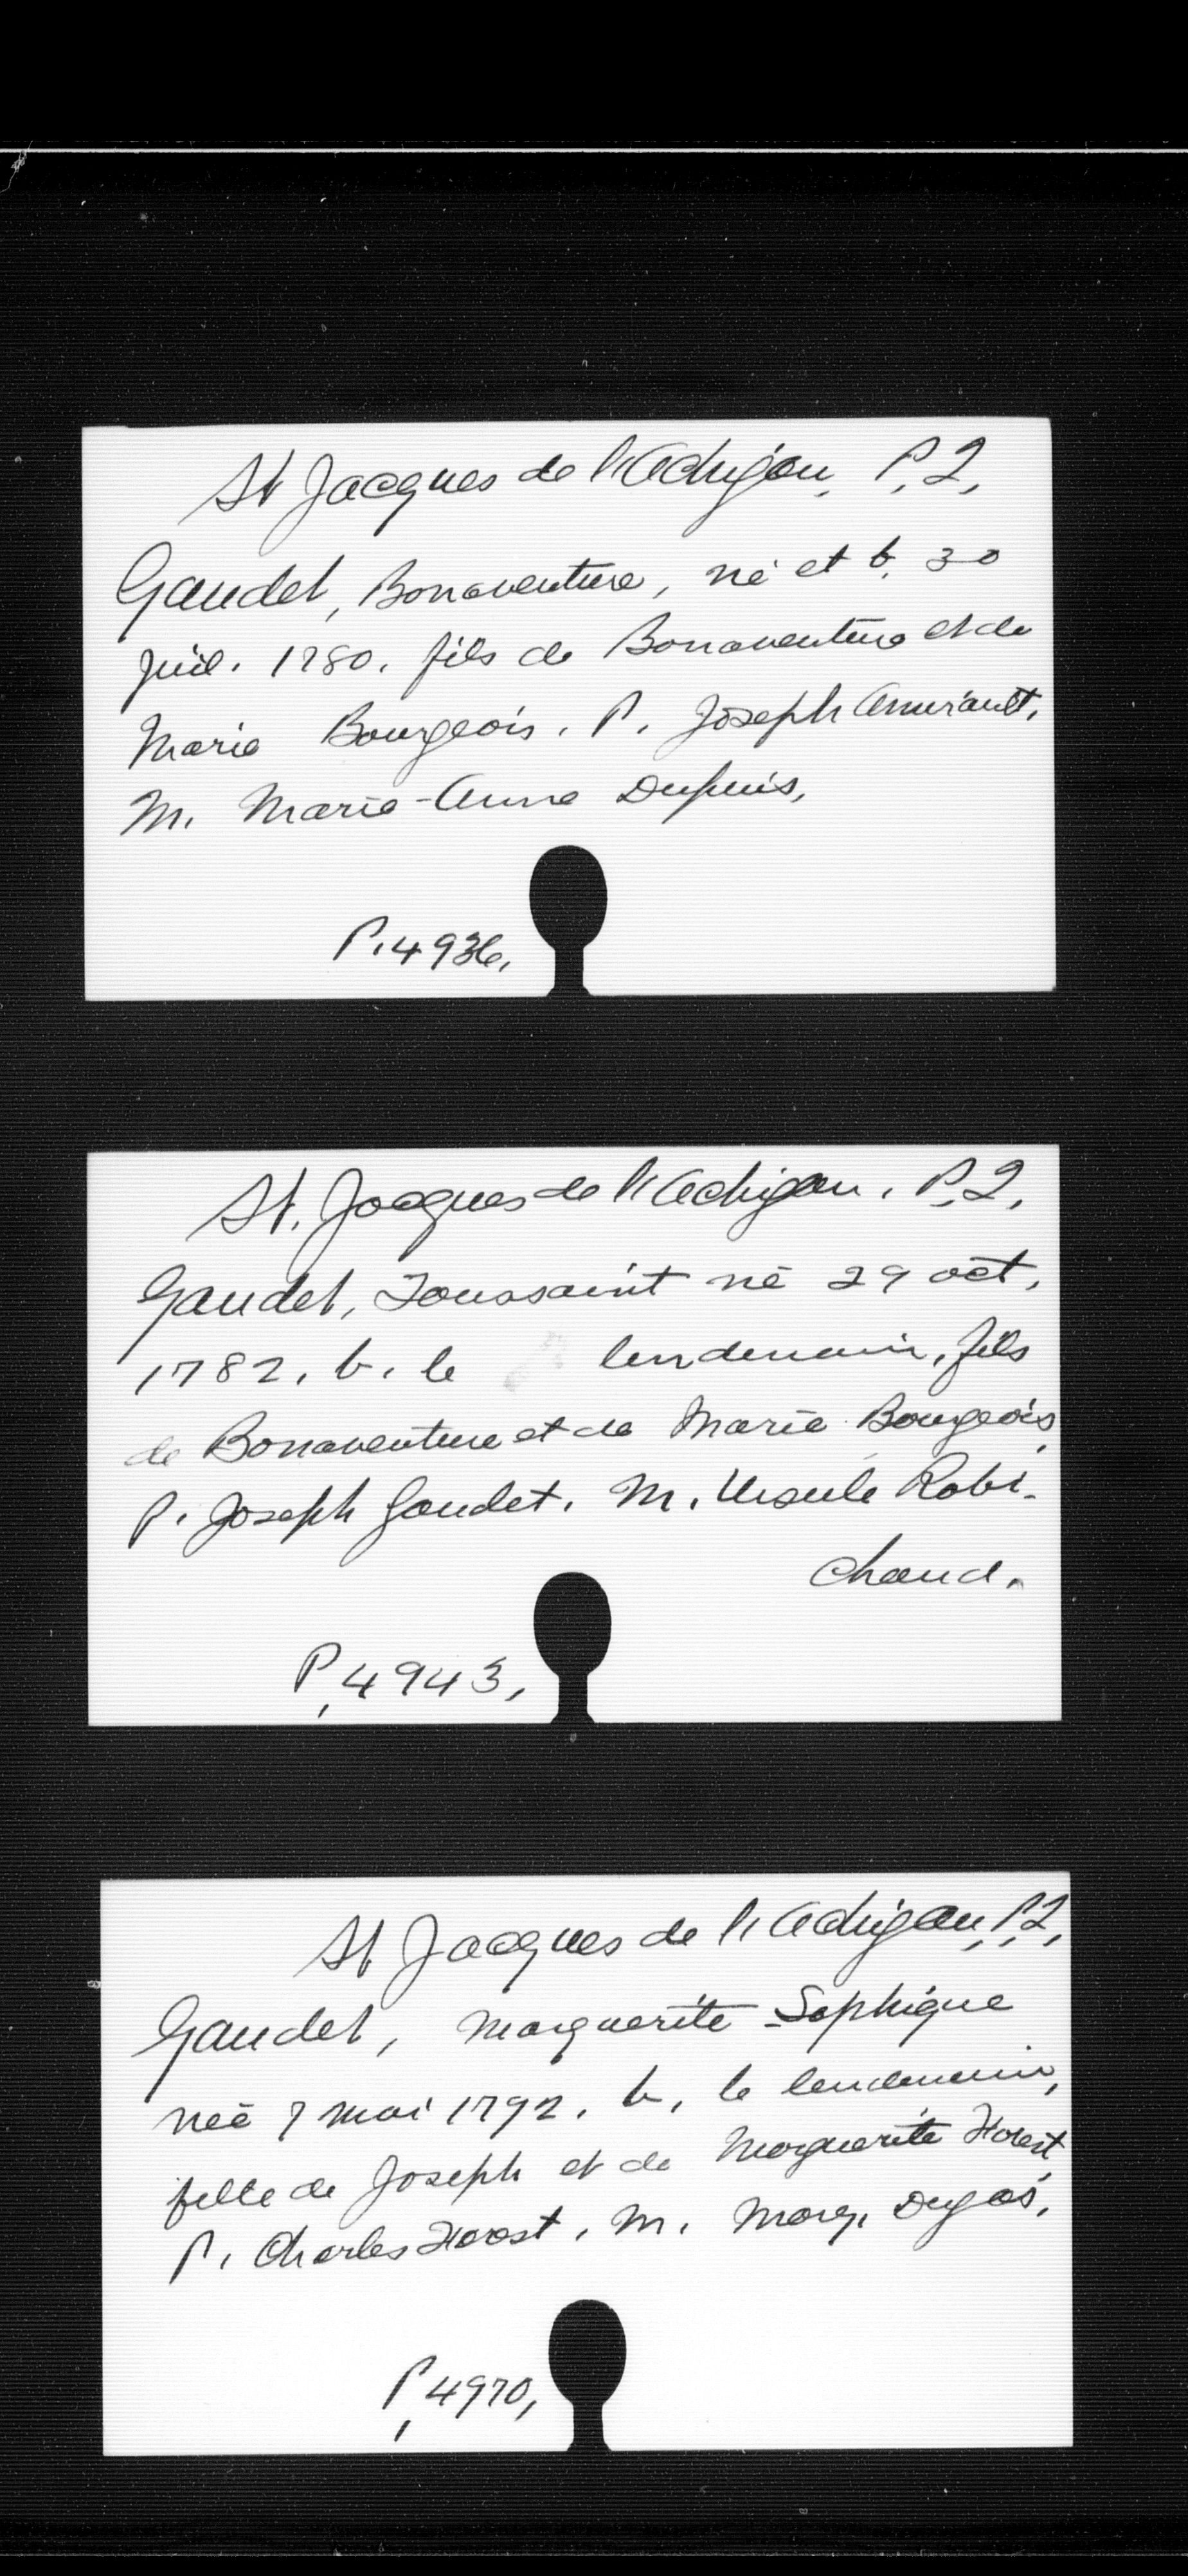 St Jacques de l'Achigan, P.Q,
Gaudet, Bonaventure, né et b. 30
Juil. 1780. fils de Bonaventure et de
Marie Bourgeois. P. Joseph Amirault.
M. Marie-Anne Dupuis,
P. 4936,
St. Jacques de l'Achigan. P.Q,
Gaudet, Toussaint né 29 oct,
1782, b. le lendemain, fils
de Bonaventure et de Marie Bourgeois,
P. Joseph Gaudet. M. Ursule Robi-
chaud.
P, 4943,
St Jacques de l'Achigan, P.Q,
Gaudet, Marguerite-Sophique
née 7 mai 1792. b, le lendemain,
fille de Joseph et de Marguerite Forest,
P. Charles Forest. M. Marg. Dugas.
P, 4970,